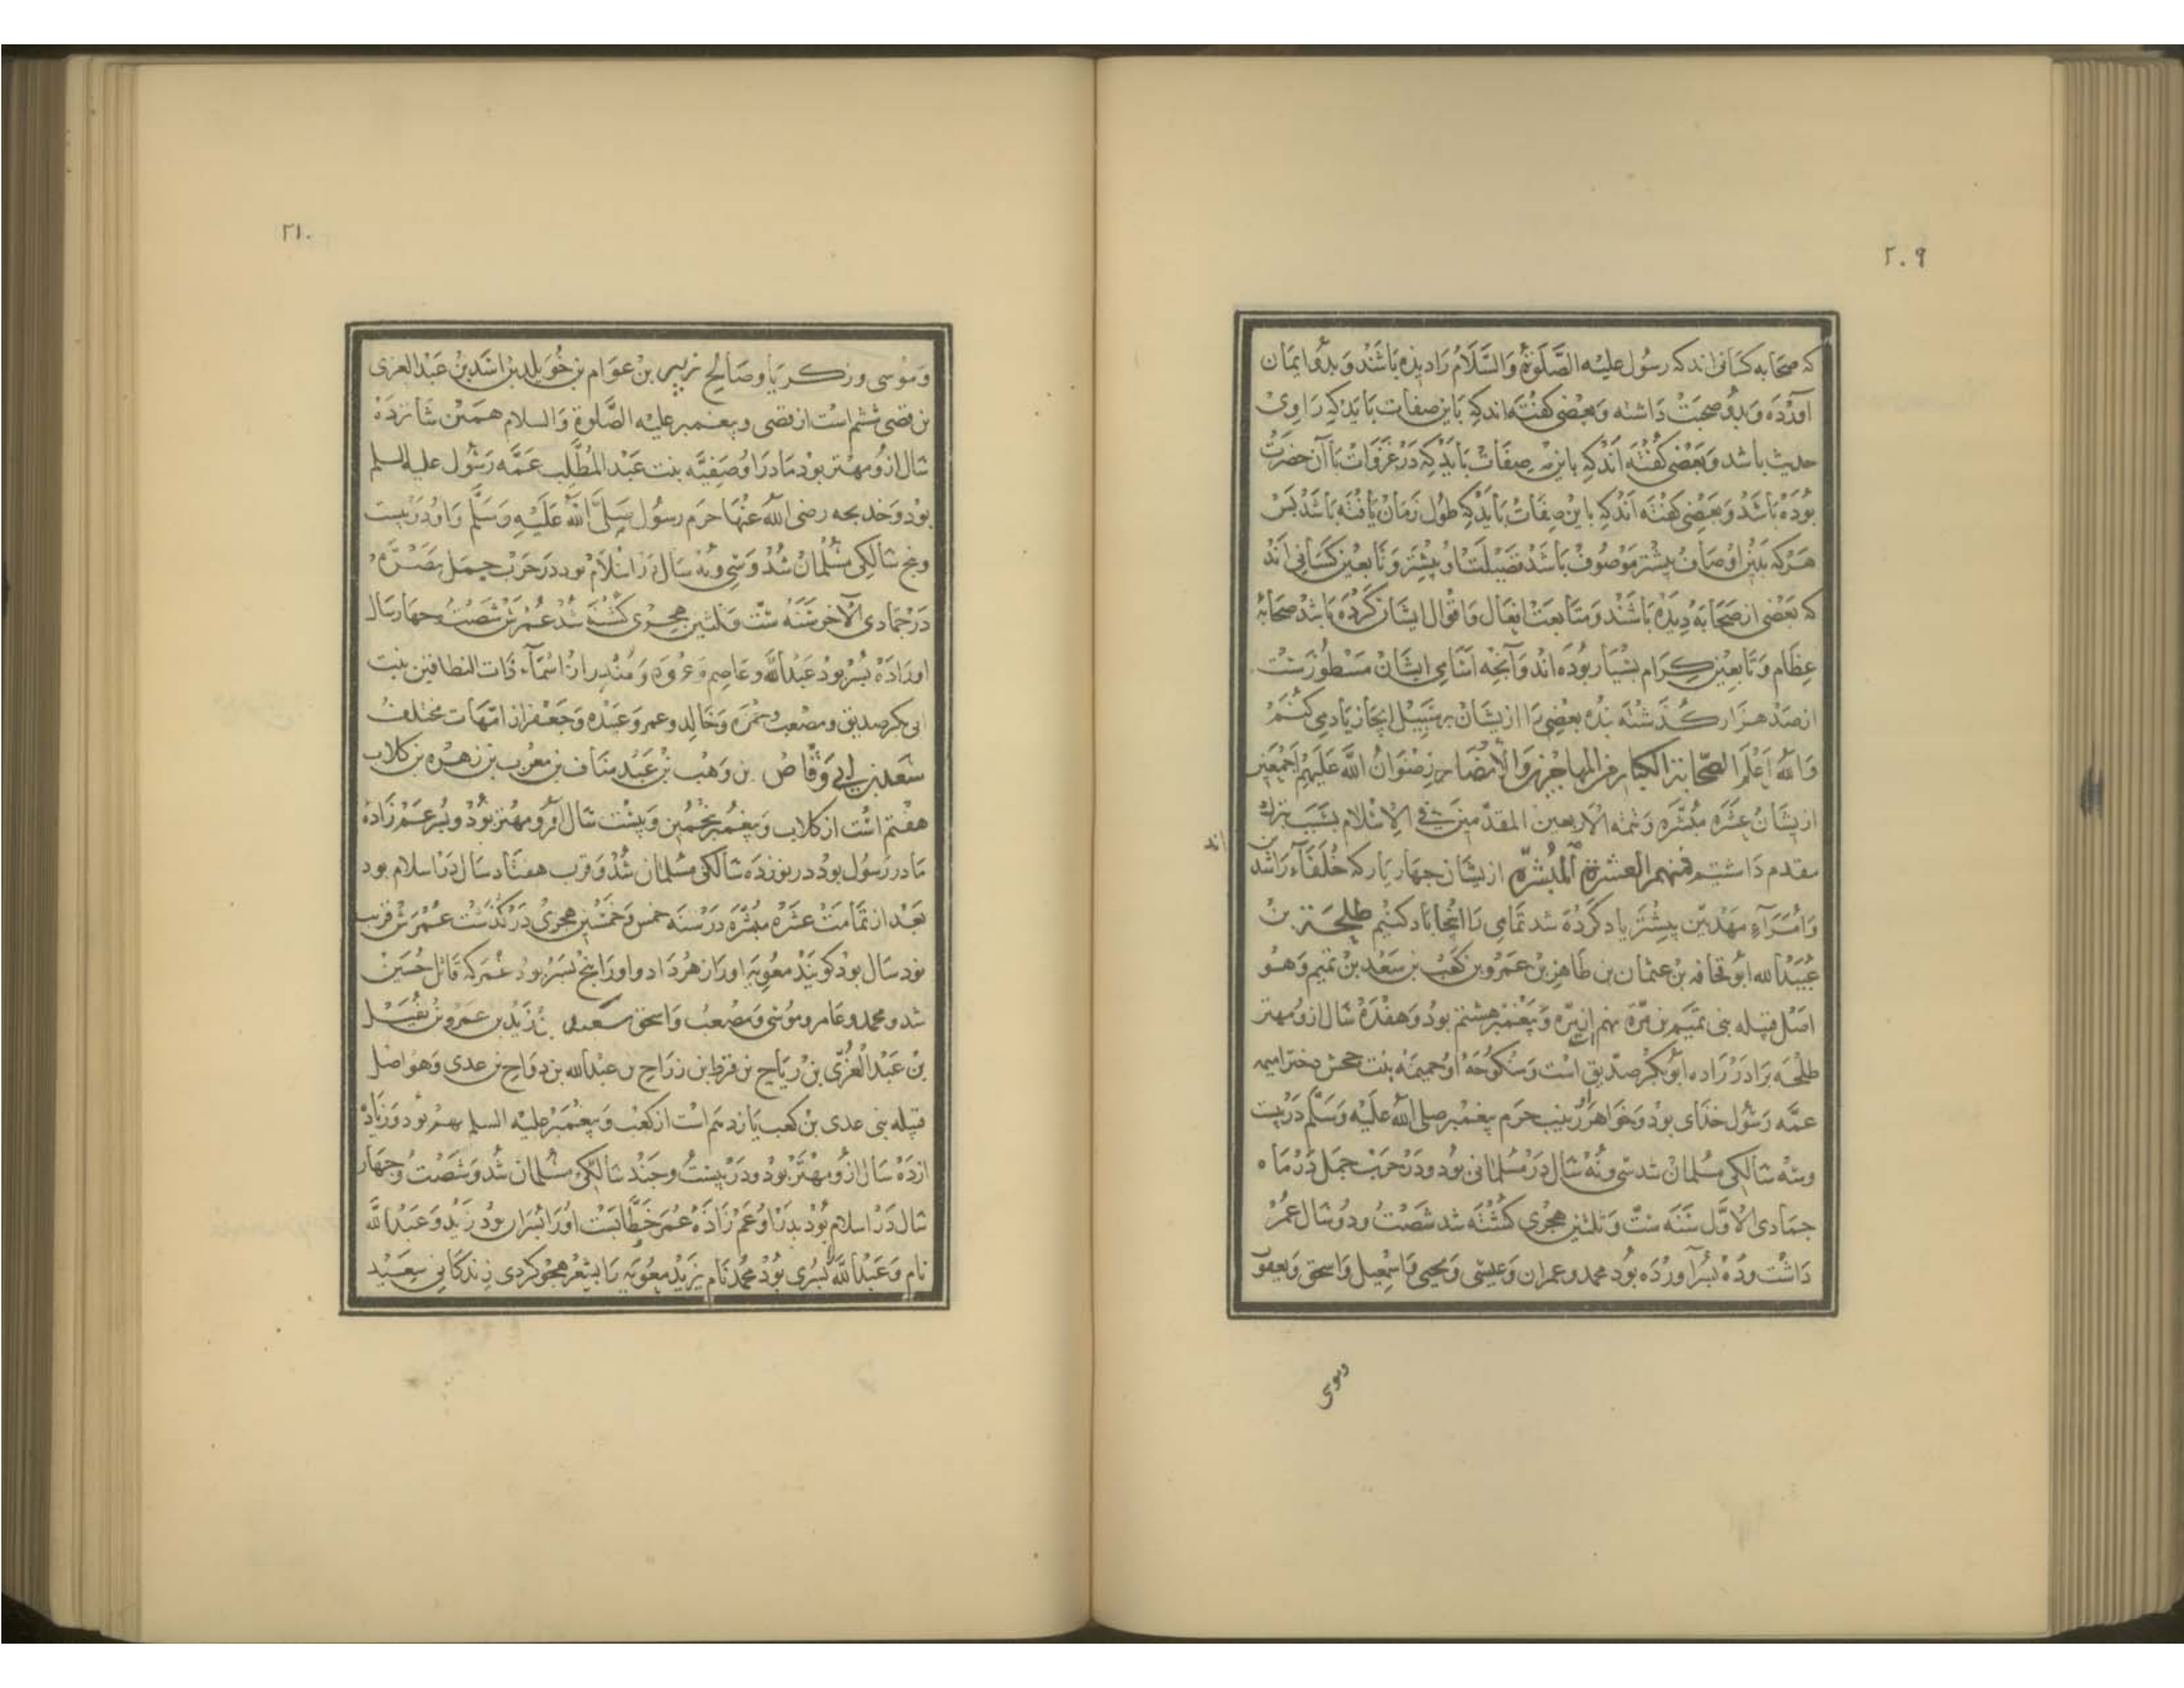 ٢٠٩
که صحابه کسانی اند که رسول علیه الصلوة والسلام را دیده باشند و بدو ایمان
آورده و بدو صحبت داشته و بعضی گفته اند که باین صفات باید که راوی
حدیث باشد و بعضی گفته اند که باین صفات باید که در غزوات با آن حضرت
بوده باشد و بعضی گفته اند که باین صفات باید که طول زمان یافته باشد پس
هرکه بدین اوصاف بیشتر موصوف باشد فضیلت او بیشتر و تابعین کسانی اند
که بعضی از صحابه دیده باشند و متابعت افعال و اقوال ایشان کرده باشد صحابه
عظام و تابعین کرام بسیار بوده اند و آنچه اسامی ایشان مسطورست
از صد هزار گذشته بده بعضی را از ایشان بر سبیل ایجاز یاد می کنیم
والله اعلم الصحابة الکبار من المهاجرین والانصار رضوان الله علیهم اجمعین
ازیشان عشره مبشره و تتمه الاربعین المقدمین فی الاسلام بسبب تبرک
مقدم داشتیم فمنهم العشرة المبشرة ازیشان چهار یار که خلفاء راشدین اند
و امراء مهدیین بیشتر یاد کرده شد تمامی را اینجا یاد کنیم طلحة بن
عبیدالله ابو قحافه بن عثمان بن طاهر بن عمرو بن کعب بن سعد بن تمیم و هو
اصل قبیله بنی تمیم بن مره نهم است از مره و پیغمبر هشتم بود و هفده سال ازو مهتر
طلحه برادرزاده ابوبکر صدیق است و منکوحه او حمیمه بنت جحش دختر امیمه
عمه رسول خدای بود و خواهر زینب حرم پیغمبر صلی الله علیه وسلم در بیست
وسه سالکی مسلمان شد سی ونه سال در مسلمانی بود ودر حرب جمل در ماه
جمادی الاول سنه ست و ثلثین هجری کشته شد شصت ودو سال عمر
داشت وده پسر آورده بود محمد و عمران و عیسی و یحیی و اسمعیل و اسحق و یعقوب
وموسی
٢١٠
وموسی وزکریا وصالح زبیر بن عوام بن خویلد بن اسد بن عبد العزی
بن قصی ششم است از قصی و پیغمبر علیه الصلوة والسلام همین شانزده
سال ازو مهتر بود مادر او صفیه بنت عبد المطلب عمه رسول علیه السلم
بود و خدیجه رضی الله عنها حرم رسول صلی الله علیه وسلم و او در بیست
وپنج سالکی مسلمان شد و سی ونه سال در اسلام بود در حرب جمل ببصره
در جمادی الآخر سنه ست وثلثین هجری کشته شد عمرش شصت وچهار سال
او را ده پسر بود عبدالله و عاصم و عروه و منذر از اسماء ذات النطاقین بنت
ابی بکر صدیق و مصعب و حمزه و خالد و عمر و عبیده و جعفر از امهات مختلف
سعد بن ابی وقاص بن وهب بن عبد مناف بن معرب بن زهره بن کلاب
هفتم است از کلاب و پیغمبر پنجمین و بیست سال ازو مهتر بود و پسر عم زاده
مادر رسول بود در نوزده سالکی مسلمان شد و قرب هفتاد سال در اسلام بود
بعد از تمامت عشره مبشره در سنه خمس وخمسین هجری درگذشت عمرش قریب
نود سال بود گویند معویه او را زهر داد و او را پنج پسر بود عمر که قاتل حسین
شد و محمد و عامر و موسی و مصعب و اسحق سعید بن زید بن عمرو بن نفیل
بن عبد العزی بن ریاح بن قرط بن رزاح بن عبدالله بن رواح بن عدی وهو اصل
قبیله بنی عدی بن کعب یازدهم است از کعب و پیغمبر علیه السلم نهم بود وزیاد
از ده سال ازو مهتر بود ودر بیست وچند سالکی مسلمان شد و شصت و چهار
سال در اسلام بود پدر او عم زاده عمر خطابست او را پسران بود زید و عبد الله
نام و عبد الله پسری بود محمد نام یزید معویه را بشعر هجو کردی زندکانی سعید